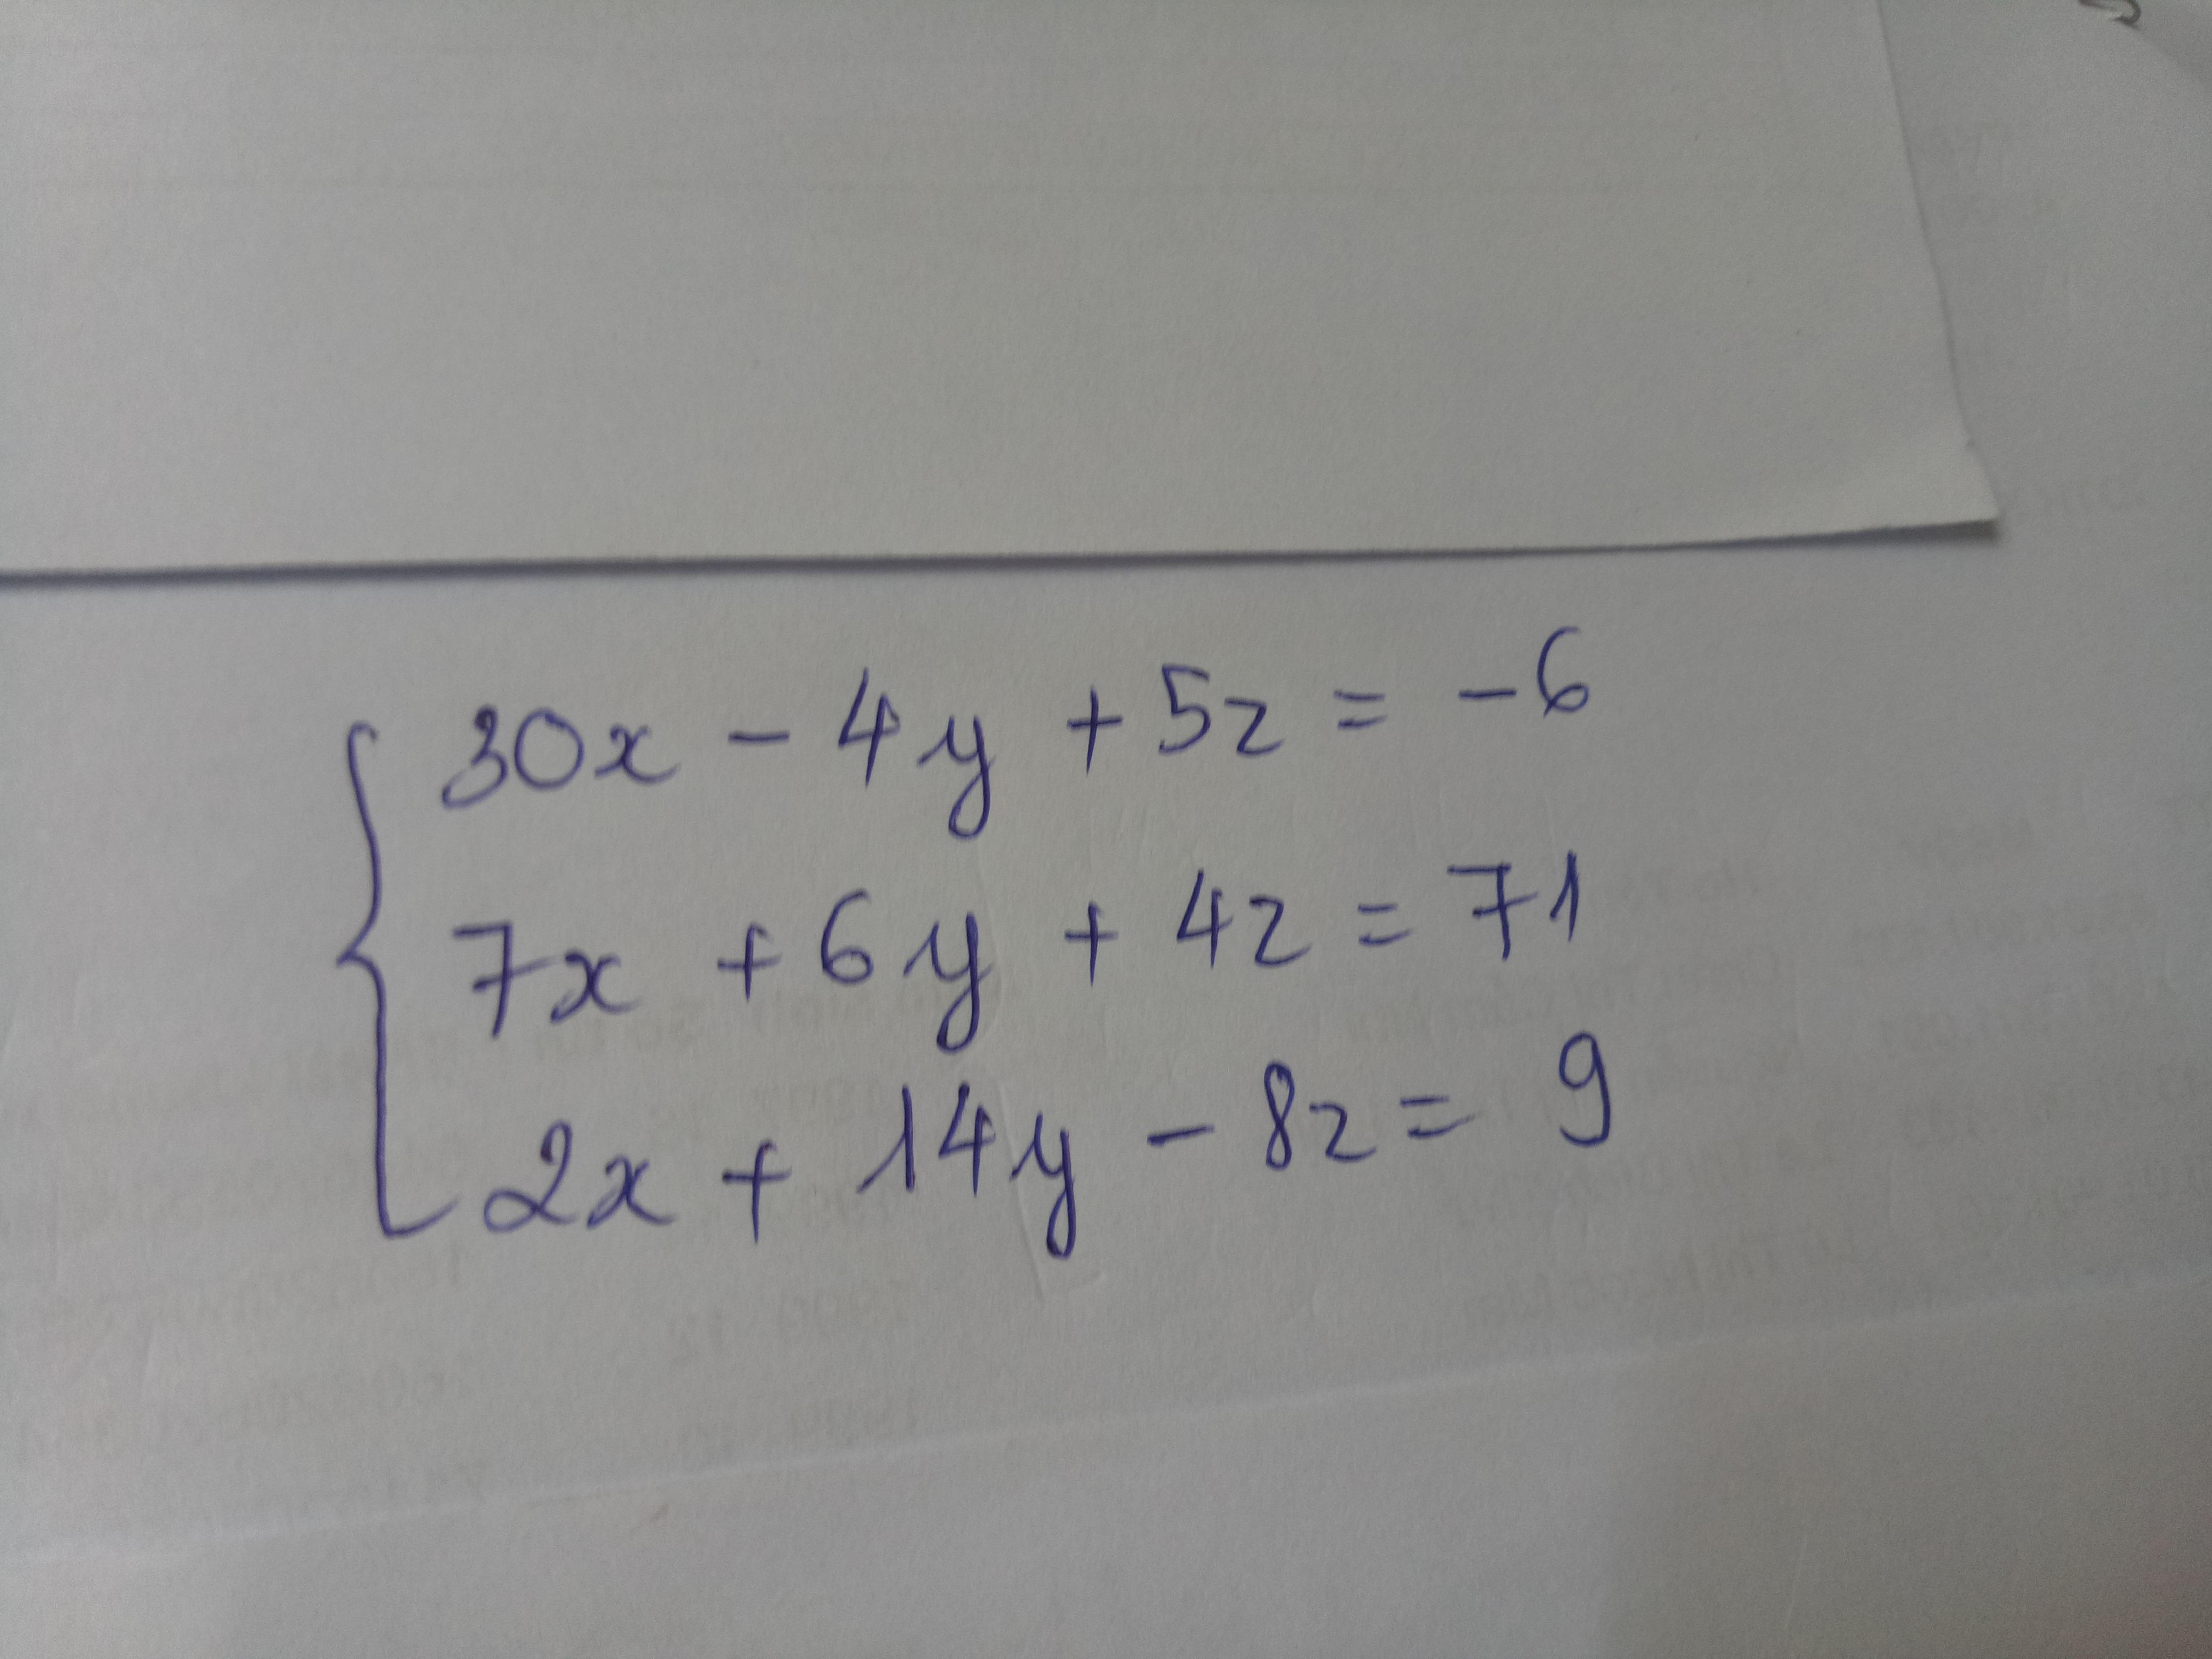 30x - 4y + 5z = -6
7x + 6y + 4z = 71
2x + 14y - 8z = 9